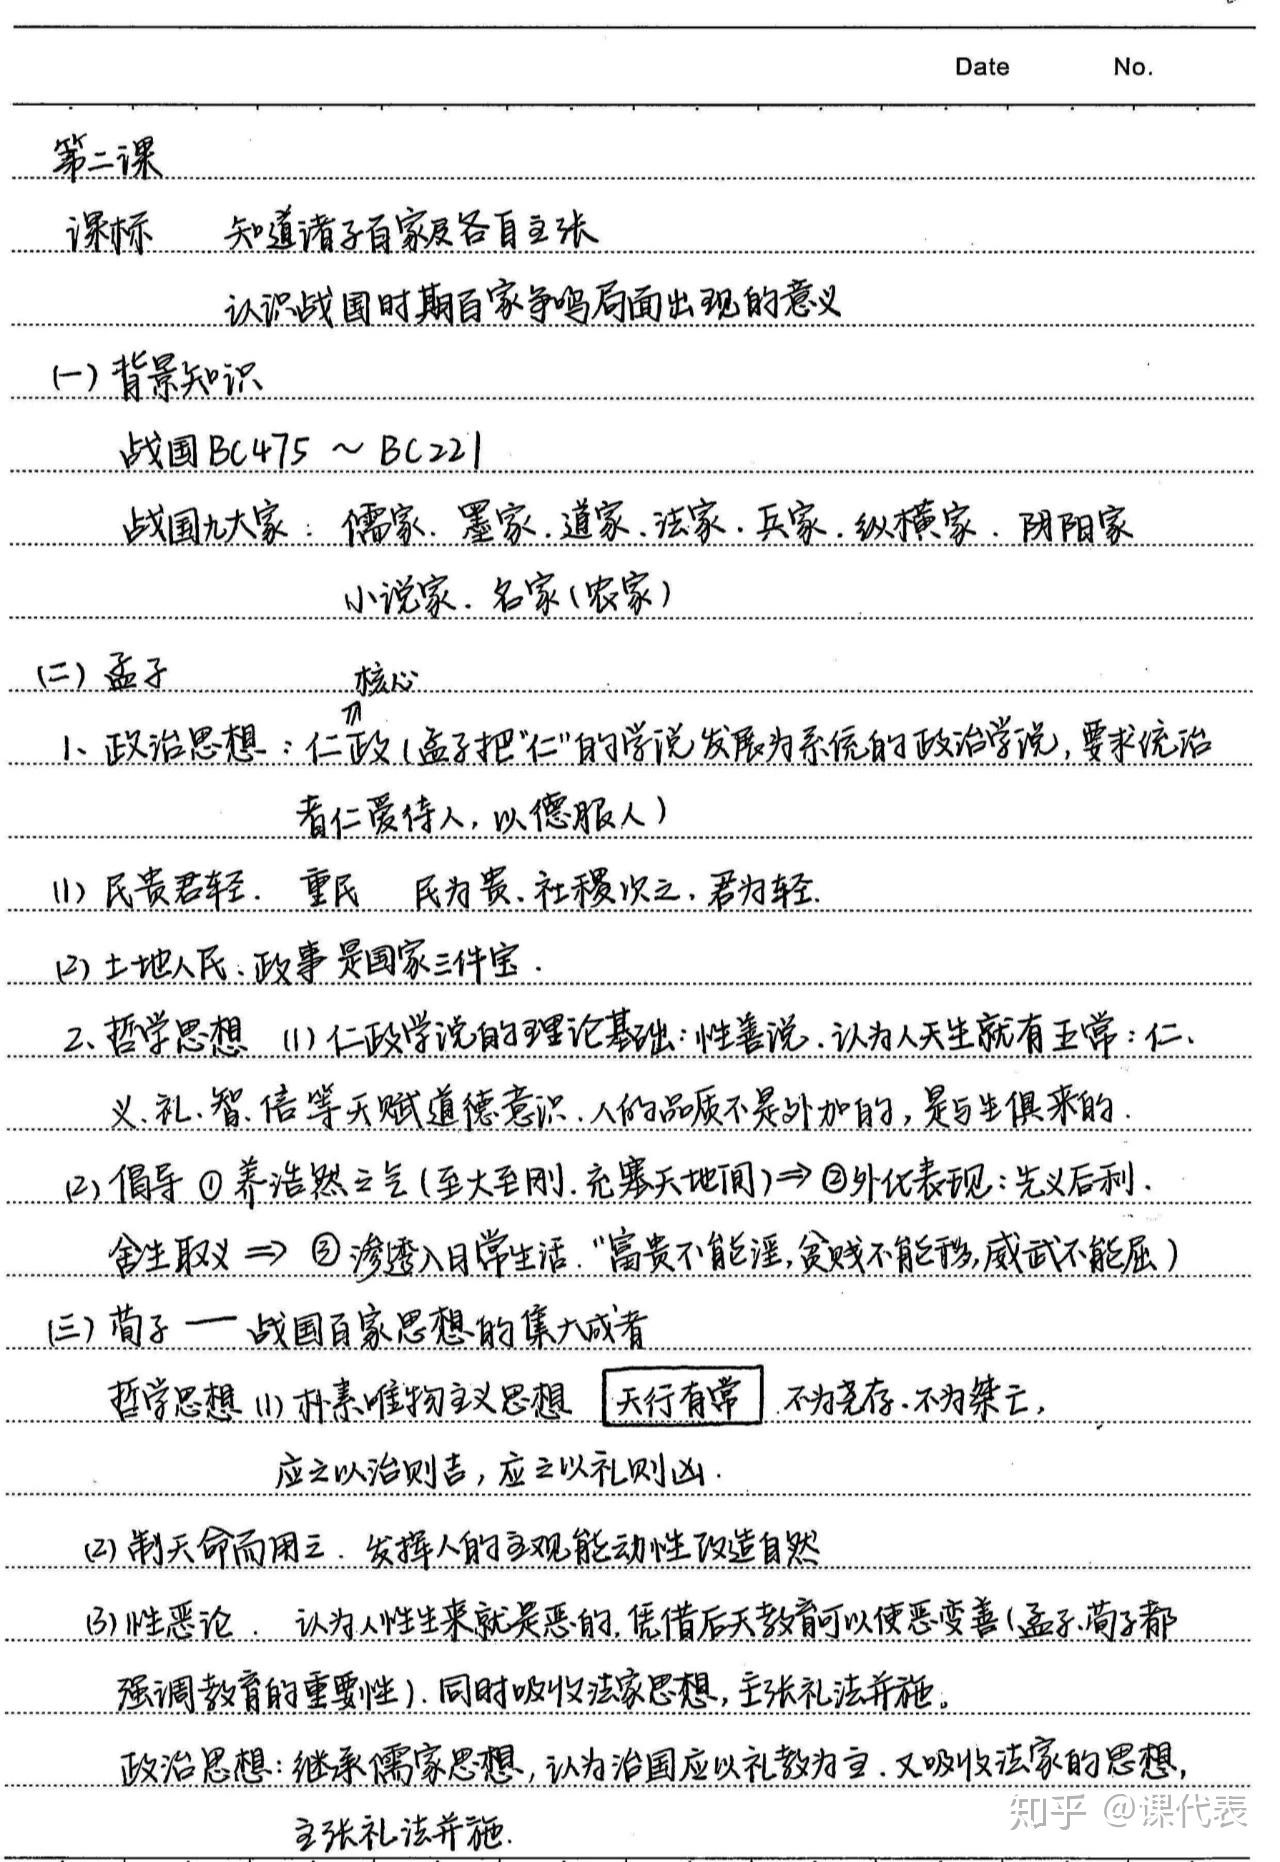 Date No.
第二课
课标 知道诸子百家及各自主张
认识战国时期百家争鸣局面出现的意义
(一) 背景知识
战国BC475 ~ BC221
战国九大家: 儒家. 墨家.道家.法家.兵家.纵横家. 阴阳家
小说家. 名家(农家)
(二) 孟子 核心
1、政治思想:仁政(孟子把"仁"的学说发展为系统的政治学说,要求统治
者仁爱待人,以德服人)
(1) 民贵君轻. 重民 民为贵、社稷次之,君为轻.
(2) 土地人民、政事是国家三件宝.
2、哲学思想 (1) 仁政学说的理论基础:性善说.认为人天生就有五常:仁、
义、礼、智、信等天赋道德意识.人的品质不是外加的,是与生俱来的.
(2) 倡导 ①养浩然之气(至大至刚.充塞天地间)⇒②外化表现:先义后利.
舍生取义⇒③渗透入日常生活."富贵不能淫,贫贱不能移,威武不能屈)
(三) 荀子 — 战国百家思想的集大成者
哲学思想 (1) 朴素唯物主义思想 天行有常 不为尧存、不为桀亡,
应之以治则吉,应之以礼则凶.
(2) 制天命而用之. 发挥人的主观能动性改造自然
(3) 性恶论. 认为人性生来就是恶的,凭借后天教育可以使恶变善(孟子、荀子都
强调教育的重要性).同时吸收法家思想,主张礼法并施。
政治思想:继承儒家思想,认为治国应以礼教为主.又吸收法家的思想,
主张礼法并施.
知乎 @课代表